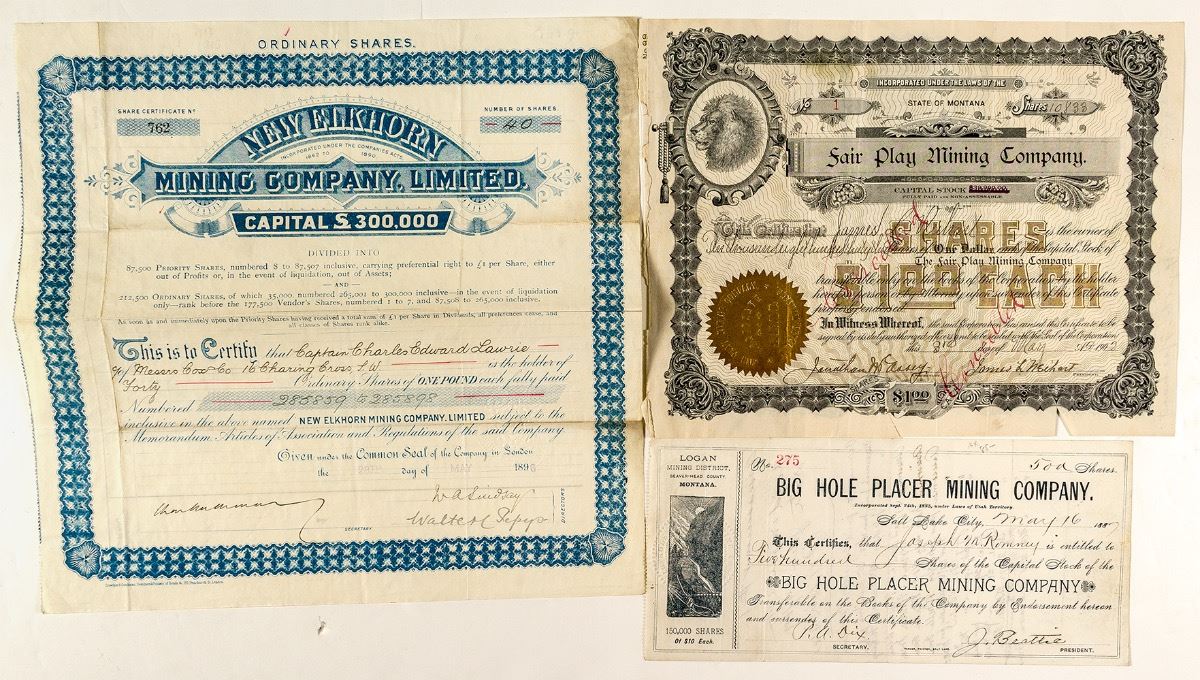 ORDINARY SHARES.
SHARE CERTIFICATE No
762
NUMBER OF SHARES.
40
NEW ELKHORN
INCORPORATED UNDER THE COMPANIES ACTS,
1862 TO 1890.
MINING COMPANY, LIMITED.
CAPITAL £300,000
DIVIDED INTO
87,500 PRIORITY SHARES, numbered 8 to 87,507 inclusive, carrying preferential right to £1 per Share, either
out of Profits or, in the event of liquidation, out of Assets;
— AND —
212,500 ORDINARY SHARES, of which 35,000 numbered 265,001 to 300,000 inclusive—in the event of liquidation
only—rank before the 177,500 Vendor's Shares, numbered 1 to 7, and 87,508 to 265,000 inclusive.
As soon as and immediately upon the Priority Shares having received a total sum of £1 per Share in Dividends, all preferences cease, and
all classes of Shares rank alike.
This is to Certify that Captain Charles Edward Lawrie
of Messrs Cox & Co 16 Charing Cross S.W. is the holder of
Forty Ordinary Shares of ONE POUND each fully paid
Numbered 285859 to 285898
inclusive in the above named NEW ELKHORN MINING COMPANY, LIMITED subject to the
Memorandum Articles of Association and Regulations of the said Company.
Given under the Common Seal of the Company in London
the 29TH day of MAY 1896
W A Lindsay
Walter C Pepys
DIRECTORS
SECRETARY
INCORPORATED UNDER THE LAWS OF THE
STATE OF MONTANA
No 1
Shares 10833
Fair Play Mining Company.
CAPITAL STOCK
FULLY PAID AND NON-ASSESSABLE
This Certifies that James is the owner of
SHARES
One Dollar each of the Capital Stock of
The Fair Play Mining Company
$1.00 EACH
transferable only on the books of the Corporation by the holder
hereof in person or by Attorney upon surrender of this Certificate
properly endorsed.
Cancelled
In Witness Whereof, the said Corporation has caused this Certificate to be
signed by its duly authorized officers and to be sealed with the Seal of the Corporation
this 31st day of May 1902
SHARES
$1.00
LOGAN
MINING DISTRICT,
BEAVER-HEAD COUNTY
MONTANA.
150,000 SHARES
Of $10 Each.
No. 275
500 Shares.
BIG HOLE PLACER MINING COMPANY.
under Laws of Utah Territory
Salt Lake City, May 16 1887
This Certifies, that Joseph M Romney is entitled to
Five hundred Shares of the Capital Stock of the
BIG HOLE PLACER MINING COMPANY
Transferable on the Books of the Company by Endorsement hereon
and surrender of this Certificate.
F. A. Dix.
SECRETARY.
J. Beattie
PRESIDENT.